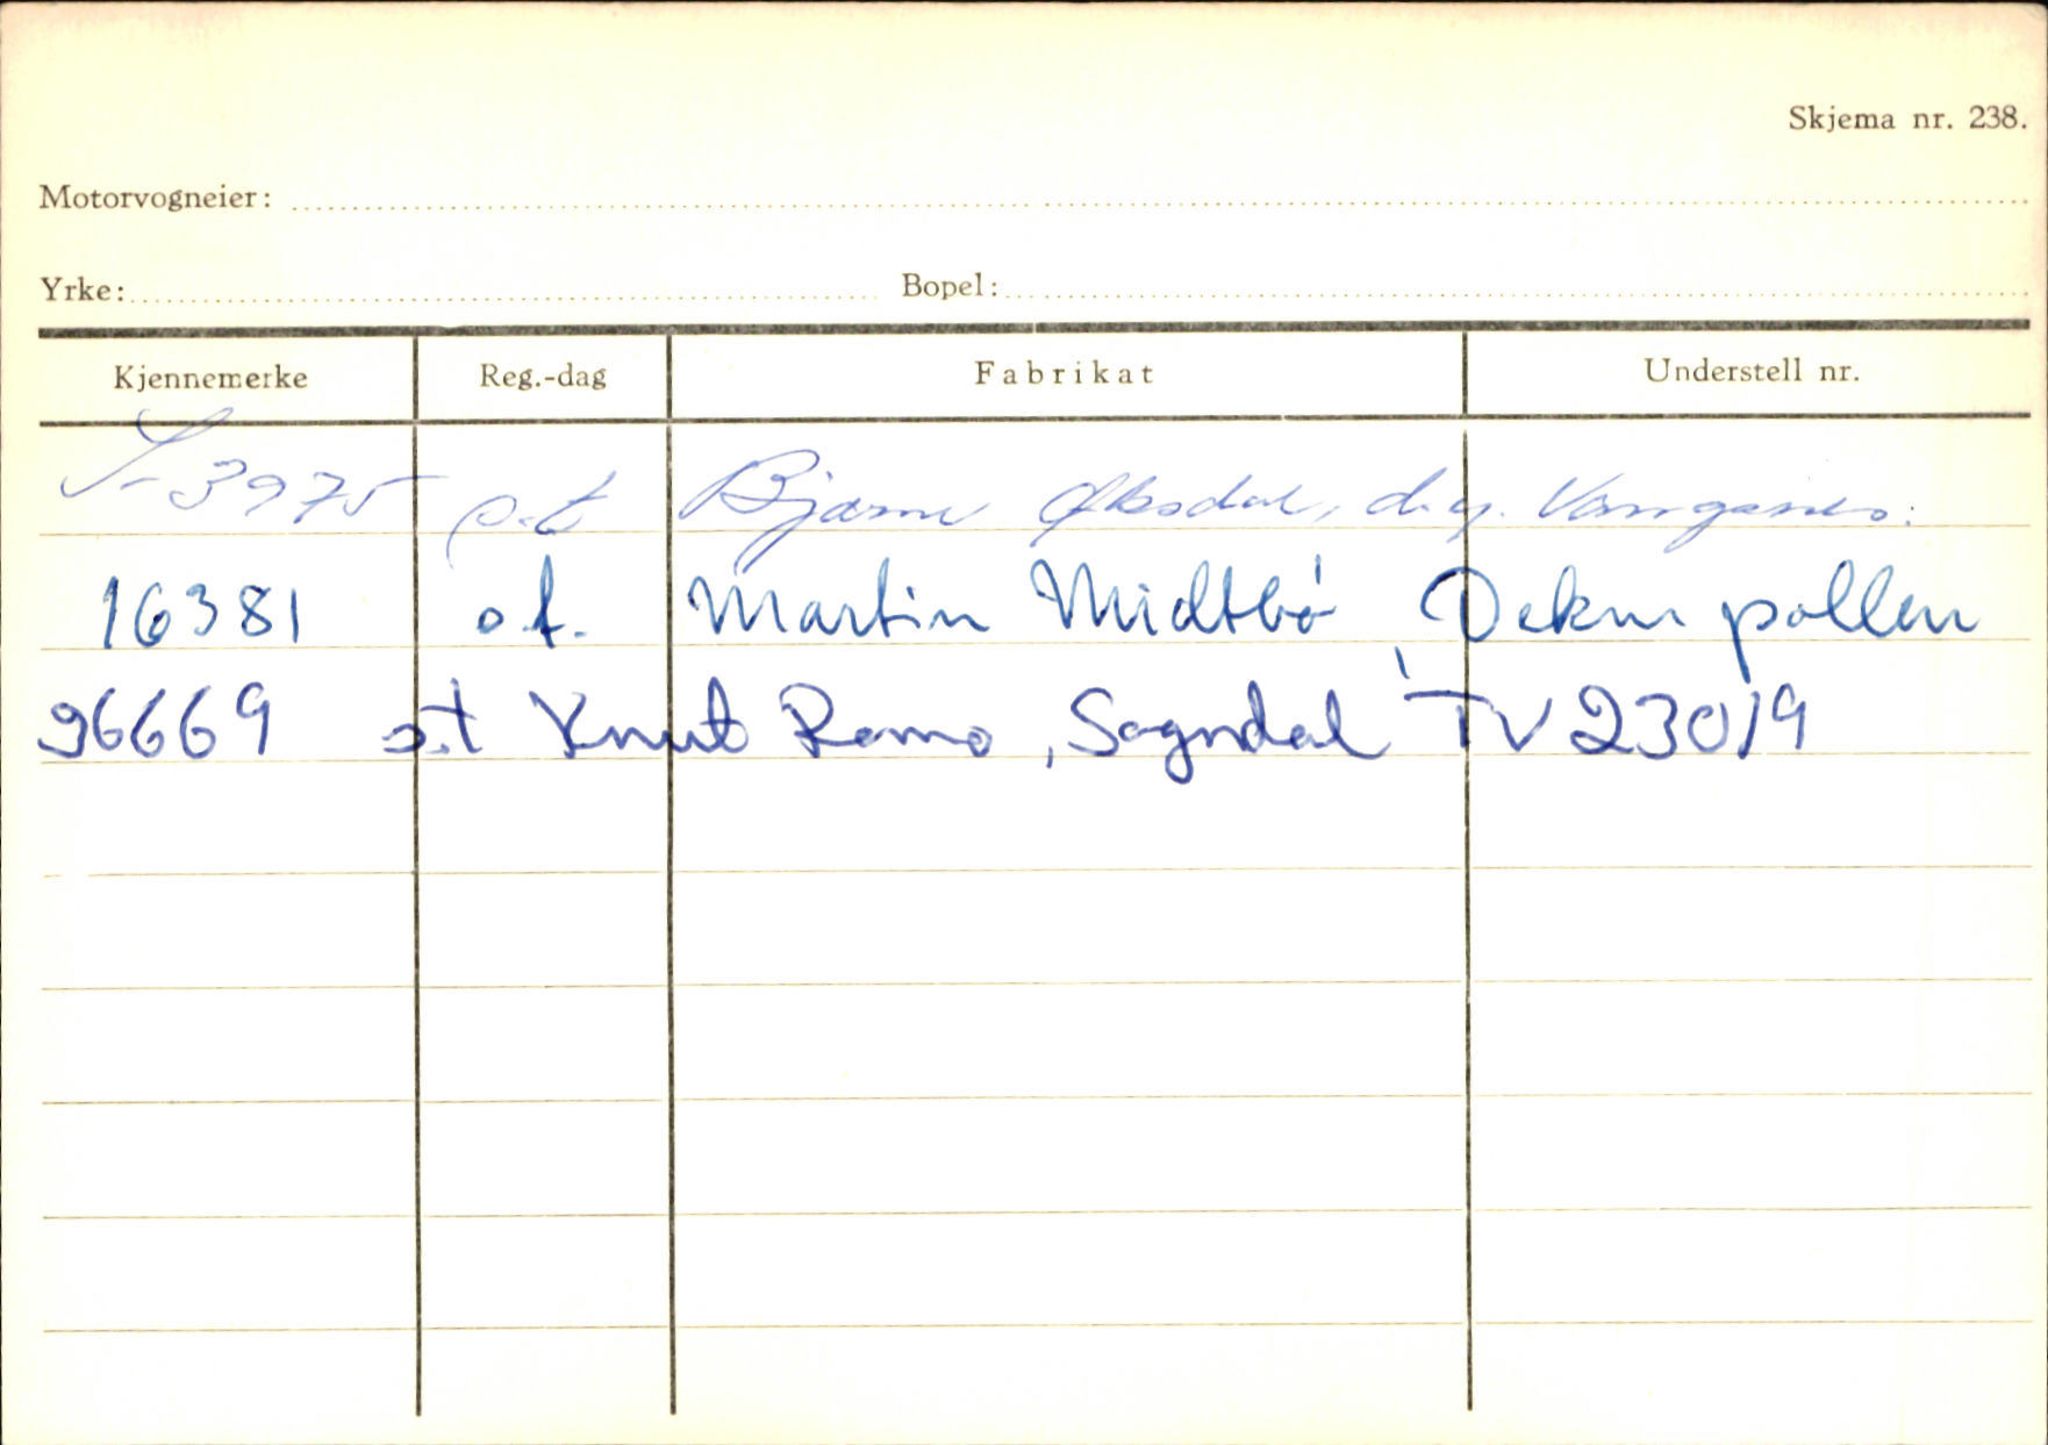 Skjema nr. 238.
Motorvogneier:
Yrke: Bopel:
Kjennemerke Reg.-dag Fabrikat Understell nr.
S-3975 o.t Bjarne Øksdal, d.y. Vangsnes.
16381 o.t. Martin Midtbö, Deknepollen
96669 o.t Knut Ramo, Sogndal TV 23019